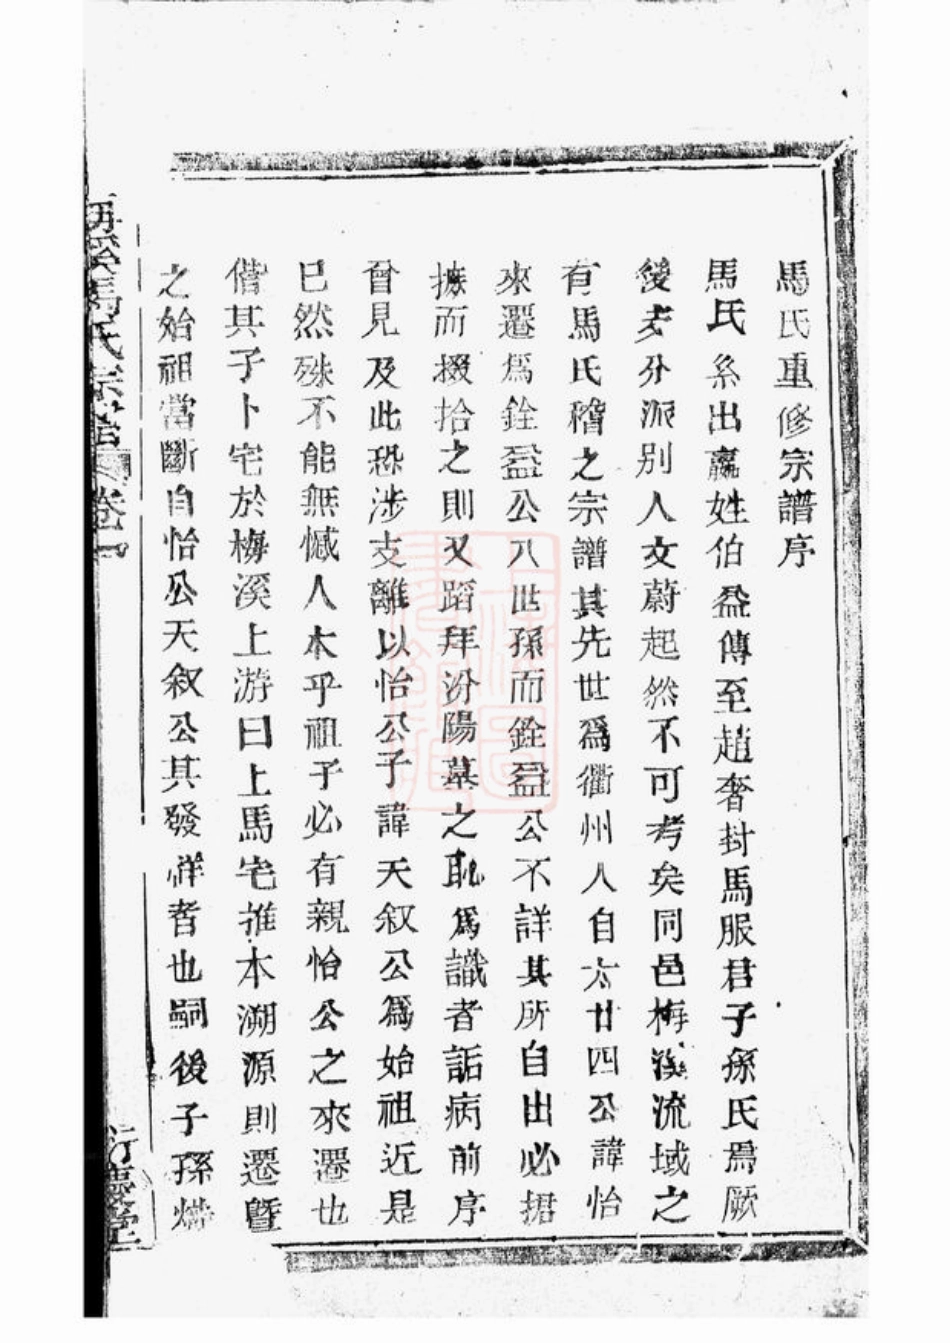 馬氏重修宗譜序
馬氏系出嬴姓伯益傳至趙奢封馬服君子孫氏焉厥
後支分派別人文蔚起然不可考矣同邑梅溪流域之
有馬氏稽之宗譜其先世爲衢州人自六廿四公諱怡
來遷爲銓益公八世孫而銓益公不詳其所自出必据
摭而掇拾之則又蹈拜汾陽墓之恥爲識者詬病前序
曾見及此恐涉支離以怡公子諱天叙公爲始祖近是
已然殊不能無憾人本乎祖子必有親怡公之來遷也
偕其子卜宅於梅溪上游曰上馬宅推本溯源則遷暨
之始祖當斷自怡公天叙公其發祥者也嗣後子孫熾
梅溪馬氏宗譜 卷一
衍慶堂